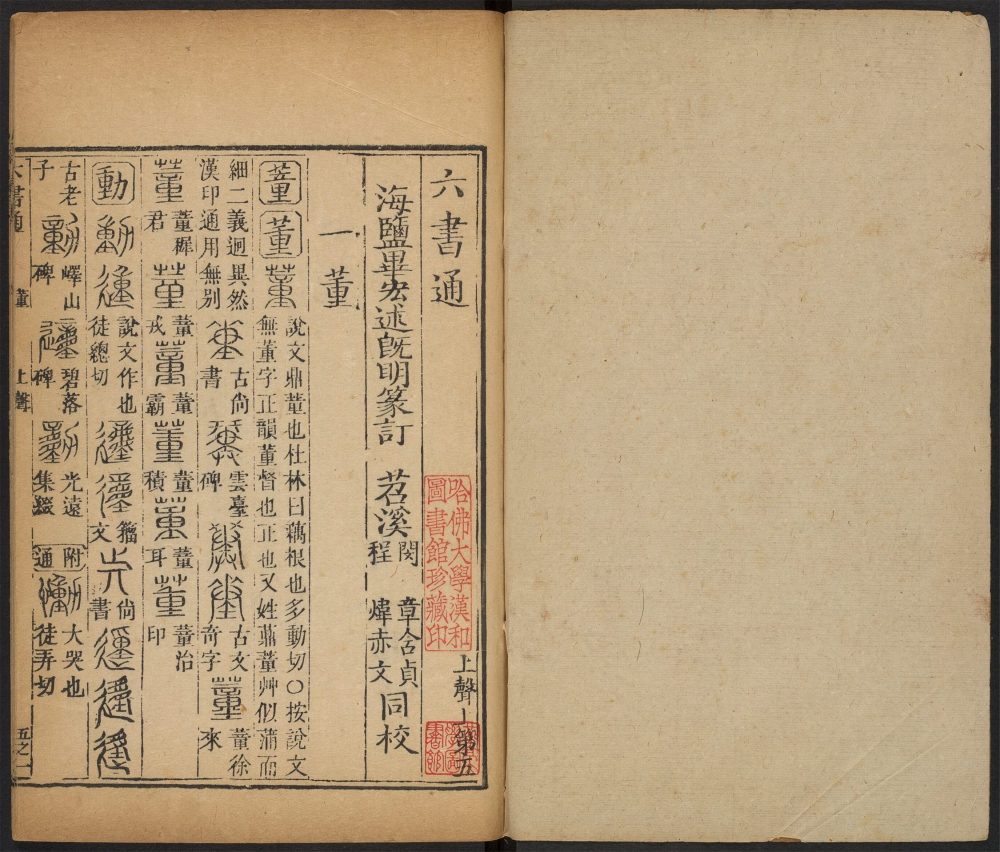 六書通 上聲上第五
哈佛大學漢和
圖書館珍藏印
海鹽畢宏述既明篆訂 苕溪 閔章含貞 程煒赤文 同校
一董
蕫 董 說文鼎蕫也杜林曰藕根也多動切○按說文
無董字正韻董督也正也又姓鼎董艸似蒲而
細二義迥異然
漢印通用無別 古尚書 雲臺碑 古文奇字 董徐來
董穉君 董戎 董霸 董積 董耳 董治印
動 說文作也徒總切 籀文 尚書
古老子 嶧山碑 碧落碑 光遠集綴 附通 大哭也徒弄切
六書通 董 上聲 五之一